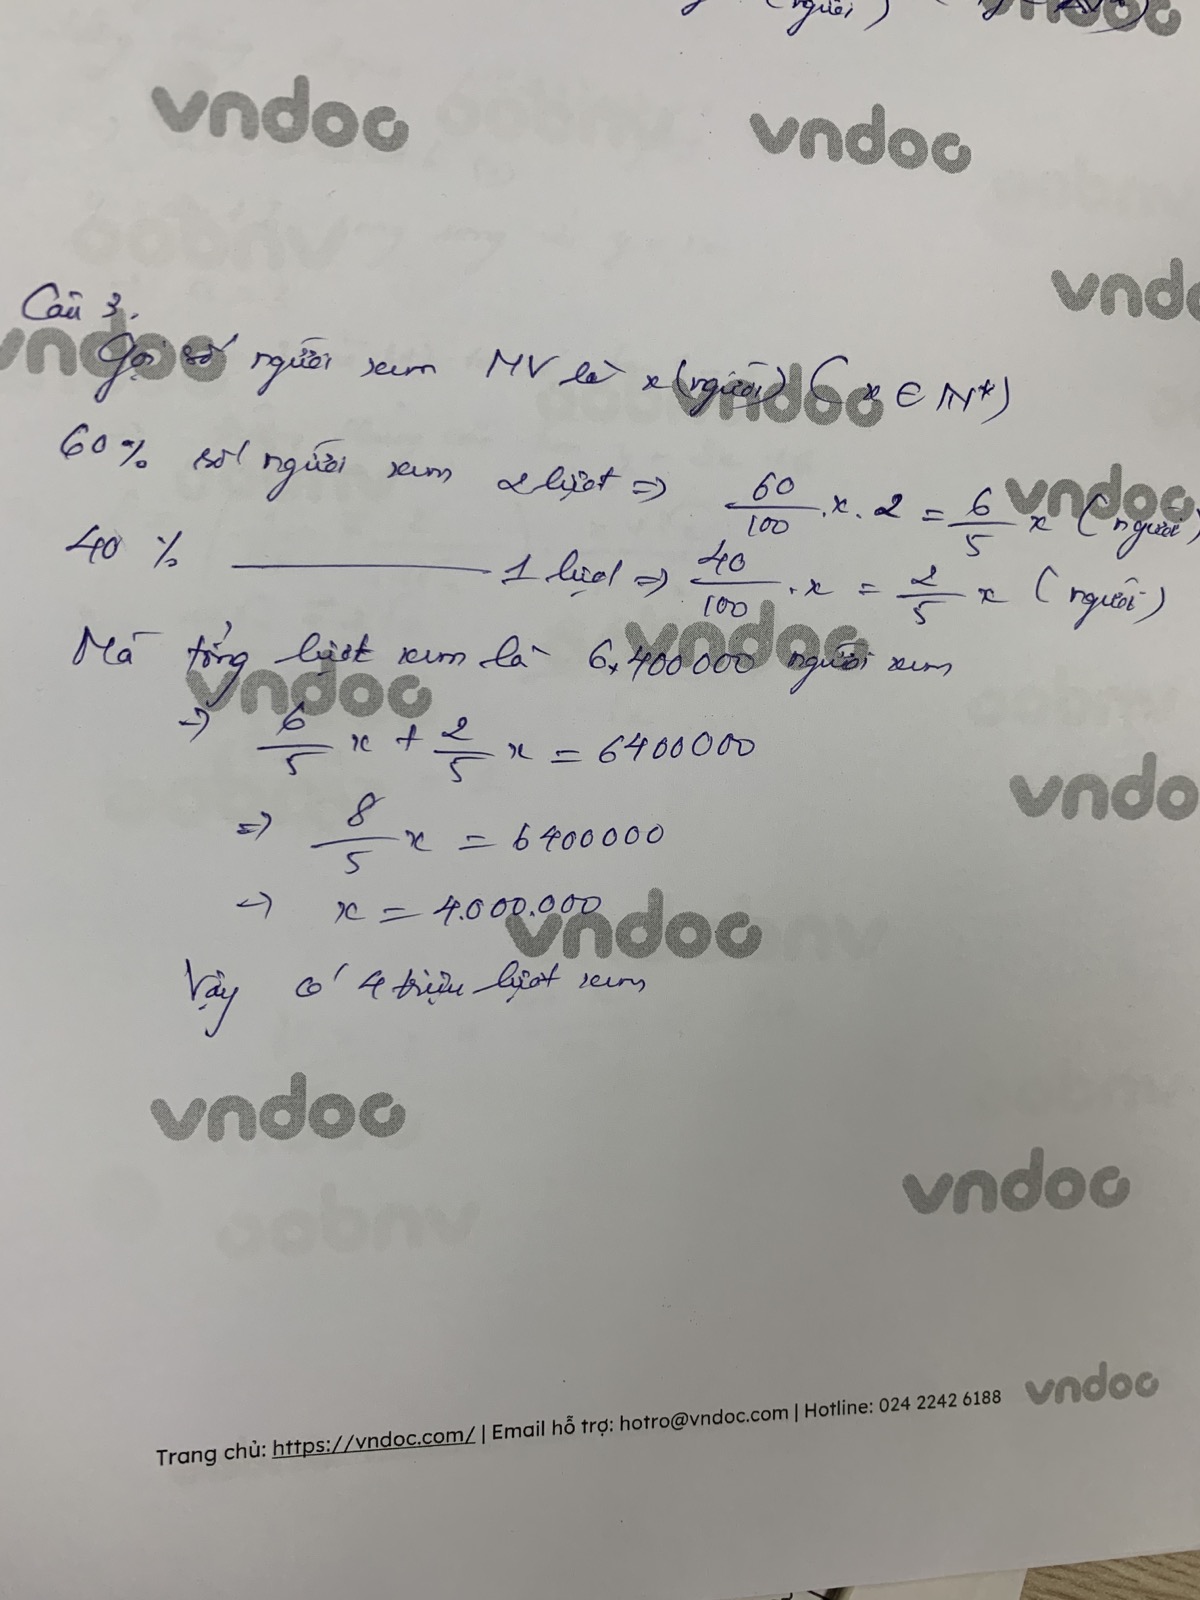 (người)
vndoc
vndoc vndoc
vndoc
Câu 3.
Gọi số người xem MV là x (người) (x ∈ N*)
vndoc vndoc
60% số người xem 2 lượt => 60/100 . x . 2 = 6/5 x (người)
vndoc
40 % ———— 1 lượt => 40/100 . x = 2/5 x (người)
Mà tổng lượt xem là 6.400000 người xem
vndoc vndoc
-> 6/5 x + 2/5 x = 6400000
vndo
=> 8/5 x = 6400000
-> x = 4.000.000
vndoc
Vậy có 4 triệu lượt xem
vndoc
vndoc
vndoc
Trang chủ: https://vndoc.com/ | Email hỗ trợ: hotro@vndoc.com | Hotline: 024 2242 6188